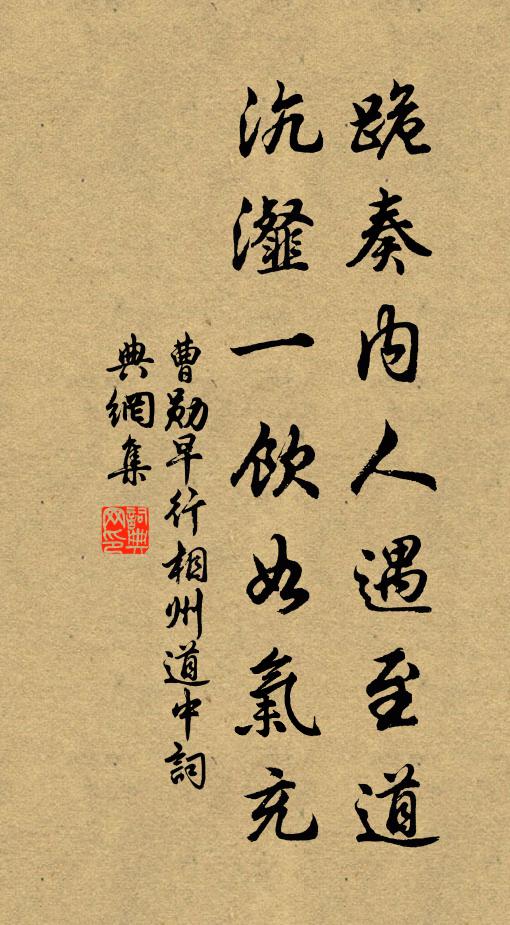 跪奏内人遇至道
沆瀣一飲如氣充
曹勋早行相州道中詞
典網集
詞典
网印